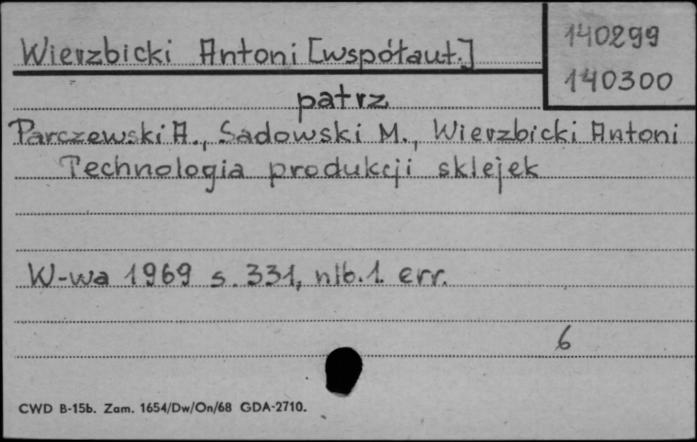 Wierzbicki Antoni [współaut.]
140299
140300
patrz
Parczewski A., Sadowski M., Wierzbicki Antoni
Technologia produkcji sklejek
W-wa 1969 s. 331, nlb. 1. err.
6
CWD B-15b. Zam. 1654/Dw/On/68 GDA-2710.